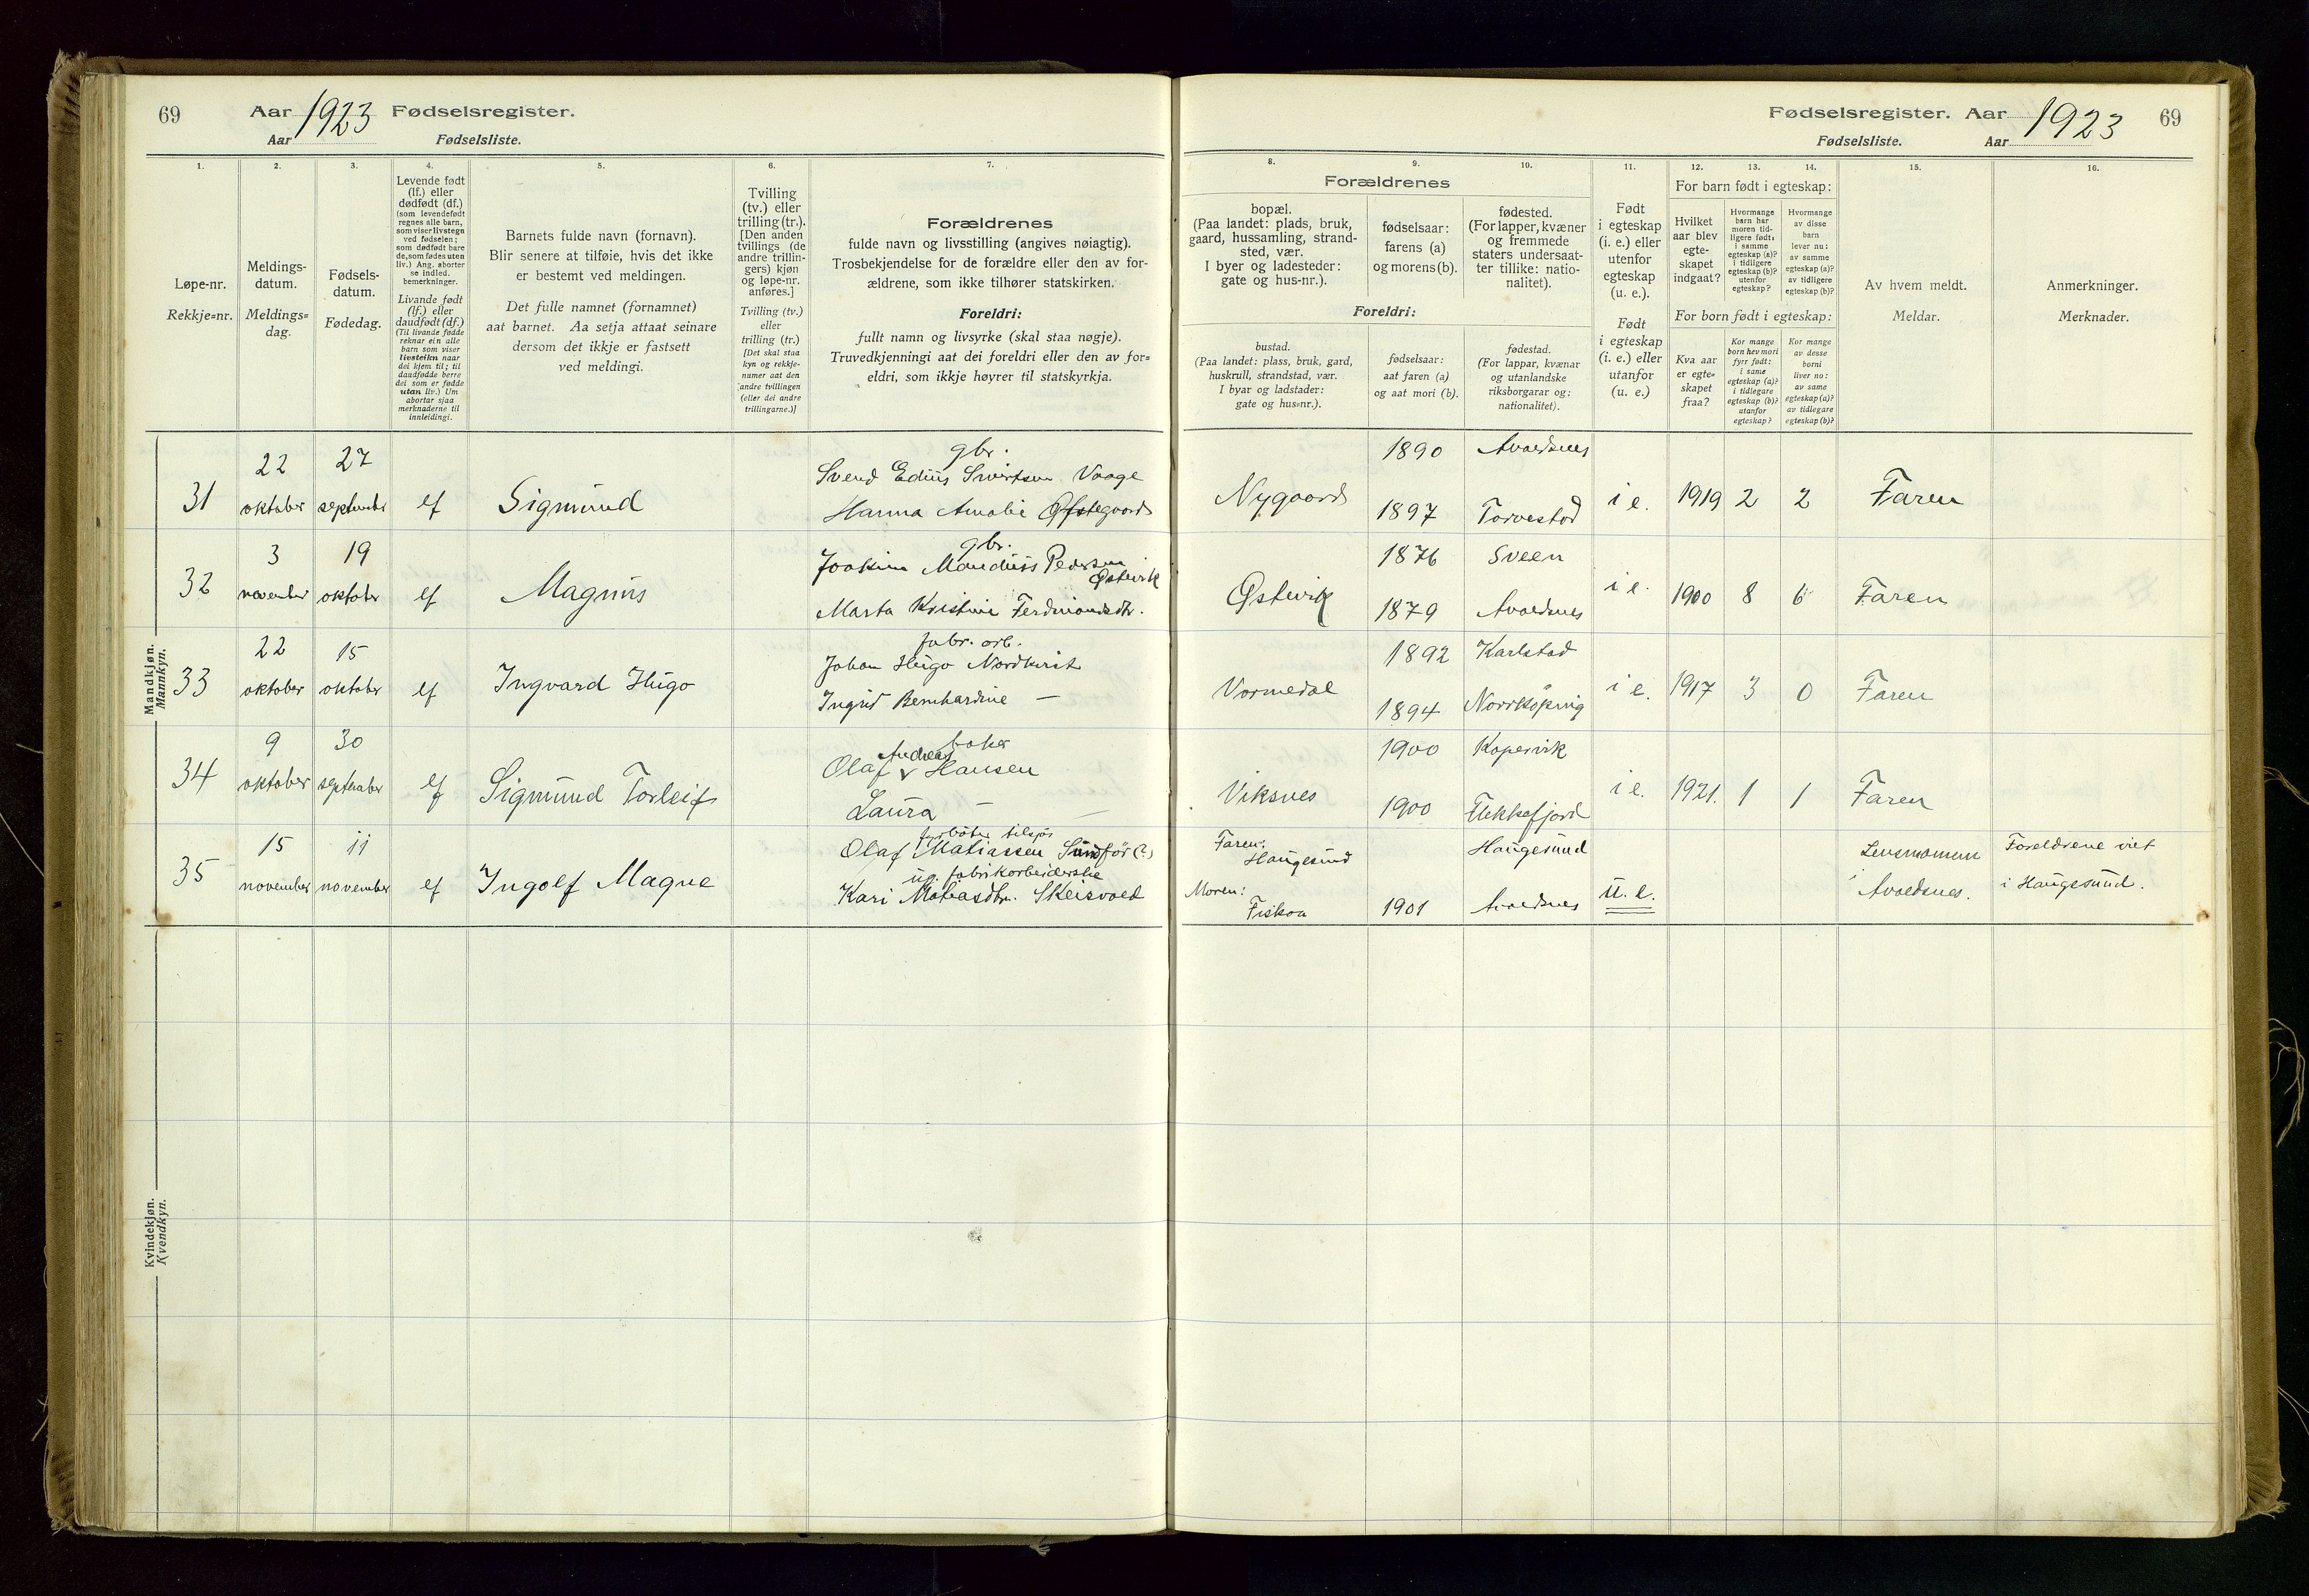 69 Aar 1923 Fødselsregister.
Aar Fødselsliste.
1. 2. 3. 4. 5. 6. 7.
Løpe-nr.
Rekkje=nr.
Meldings-
datum.
Meldings=
dag.
Fødsels-
datum.
Fødedag.
Levende født
(lf.) eller
dødfødt (df.)
(som levendefødt
regnes alle barn,
som viser livstegn
ved fødselen;
som dødfødt bare
de, som fødes uten
liv.) Ang. aborter
se indled.
bemerkninger.
Livande født
(lf.) eller
daudfødt (df.)
(Til livande fødde
reknar ein alle
barn som viser
livsteikn naar
dei kjem til; til
daudfødde berre
dei som er fødde
utan liv.) Um
abortar sjaa
merknaderne til
innleidingi.
Barnets fulde navn (fornavn).
Blir senere at tilføie, hvis det ikke
er bestemt ved meldingen.
Det fulle namnet (fornamnet)
aat barnet. Aa setja attaat seinare
dersom det ikkje er fastsett
ved meldingi.
Tvilling
(tv.) eller
trilling (tr.).
[Den anden
tvillings (de
andre trillin-
gers) kjøn
og løpe-nr.
anføres.]
Tvilling (tv.)
eller
trilling (tr.)
[Det skal staa
kyn og rekkje-
numer aat den
andre tvillingen
(eller dei andre
trillingarne.)]
Forældrenes
fulde navn og livsstilling (angives nøiagtig).
Trosbekjendelse for de forældre eller den av for-
ældrene, som ikke tilhører statskirken.
Foreldri:
fullt namn og livsyrke (skal staa nøgje).
Truvedkjenningi aat dei foreldri eller den av for=
eldri, som ikkje høyrer til statskyrkja.
Mandkjøn.
Mannkyn.
31
22
oktober
27
september
lf
Sigmund
gbr.
Svend Edius Sivertsen Vaage
Hanna Amalie Østegaard
32
3
november
19
oktober
lf
Magnus
gbr.
Joakim Mandius Pedersen
Østevik
Marta Kristine Ferdinandsdtr.
33
22
oktober
15
oktober
lf
Ingvard Hugo
fabr. arb.
Johan Hugo Nordkvist
Ingrid Bernhardine —
34
9
oktober
30
september
lf
Sigmund Torleif
baker
Andreas
Olaf Hansen
Laura —
35
15
november
11
november
lf
Ingolf Magne
fyrbøter tilsjøs
Olaf Matiassen Sundfør (?)
ug. fabrikarbeiderske
Kari Matiasdtr. Skeisvold
Kvindekjøn.
Kvendkyn.
Fødselsregister. Aar 1923 69
Fødselsliste. Aar
8. 9. 10. 11. 12. 13. 14. 15. 16.
Forældrenes
bopæl.
(Paa landet: plads, bruk,
gaard, hussamling, strand-
sted, vær.
I byer og ladesteder:
gate og hus-nr.).
fødselsaar:
farens (a)
og morens (b).
fødested.
(For lapper, kvæner
og fremmede
staters undersaat-
ter tillike: natio-
nalitet).
Foreldri:
bustad.
(Paa landet: plass, bruk, gard,
huskrull, strandstad, vær.
I byar og ladstader:
gate og hus=nr.).
fødselsaar:
aat faren (a)
og aat mori (b).
fødestad.
(For lappar, kvænar
og utanlandske
riksborgarar og:
nationalitet).
Født
i egteskap
(i. e.) eller
utenfor
egteskap
(u. e.).
Født
i egteskap
(i. e.) eller
utanfor
(u. e.)
For barn født i egteskap:
Hvilket
aar blev
egte-
skapet
indgaat?
Hvormange
barn har
moren tid-
ligere født:
i samme
egteskap (a)?
i tidligere
egteskap (b)?
utenfor
egteskap?
Hvormange
av disse
barn
lever nu:
av samme
egteskap (a)?
av tidligere
egteskap (b)?
For born født i egteskap:
Kva aar
er egte=
skapet
fraa?
Kor mange
born hev mori
fyrr født:
i same
egteskap (a)?
i tidlegare
egteskap (b)?
utanfor
egteskap?
Kor mange
av desse
borni
liver no:
av same
egteskap (a)?
av tidlegare
egteskap (b)?
Av hvem meldt.
Meldar.
Anmerkninger.
Merknader.
Nygaard
1890 Avaldsnes
1897 Torvestad
i e. 1919 2 2 Faren
Østevik
1876 Sveen
1879 Avaldsnes
i e. 1900 8 6 Faren
Vormedal
1892 Karlstad
1894 Norrköping
i e. 1917 3 0 Faren
Viksnes
1900 Kopervik
1900 Flekkefjord
i e. 1921. 1 1 Faren
Faren:
Haugesund
Haugesund
Moren:
Fiskaa
1901 Avaldsnes
u. e.
Lensmannen
i Avaldsnes.
Foreldrene viet
i Haugesund.